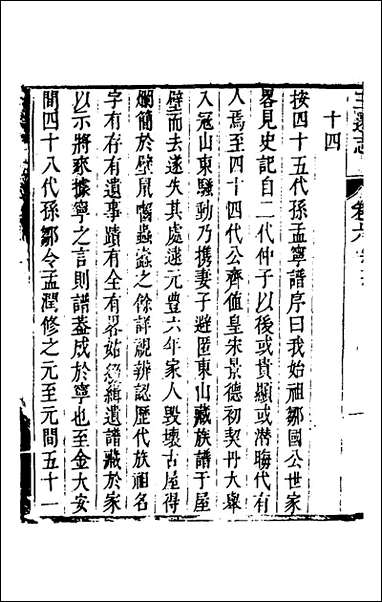 十四
按四十五代孫孟寧譜序曰我始祖鄒國公世家
畧見史記自二代仲子以後或貴顯或潛晦代有
人焉至四十四代公齊值皇宋景德初契丹大舉
入寇山東騷動乃携妻子避匿東山藏族譜于屋
壁而去遂失其處逮元豊六年家人毁壞古屋得
爛簡於壁鼠嚙蟲蠧之餘詳視辨認歷代族祖名
字有存有遺事蹟有全有畧姑綴緝遺譜藏於家
以示將來據寧之言則譜葢成於寧也至金大安
間四十八代孫鄒令孟潤修之元至元間五十一
三遷志
卷六
一